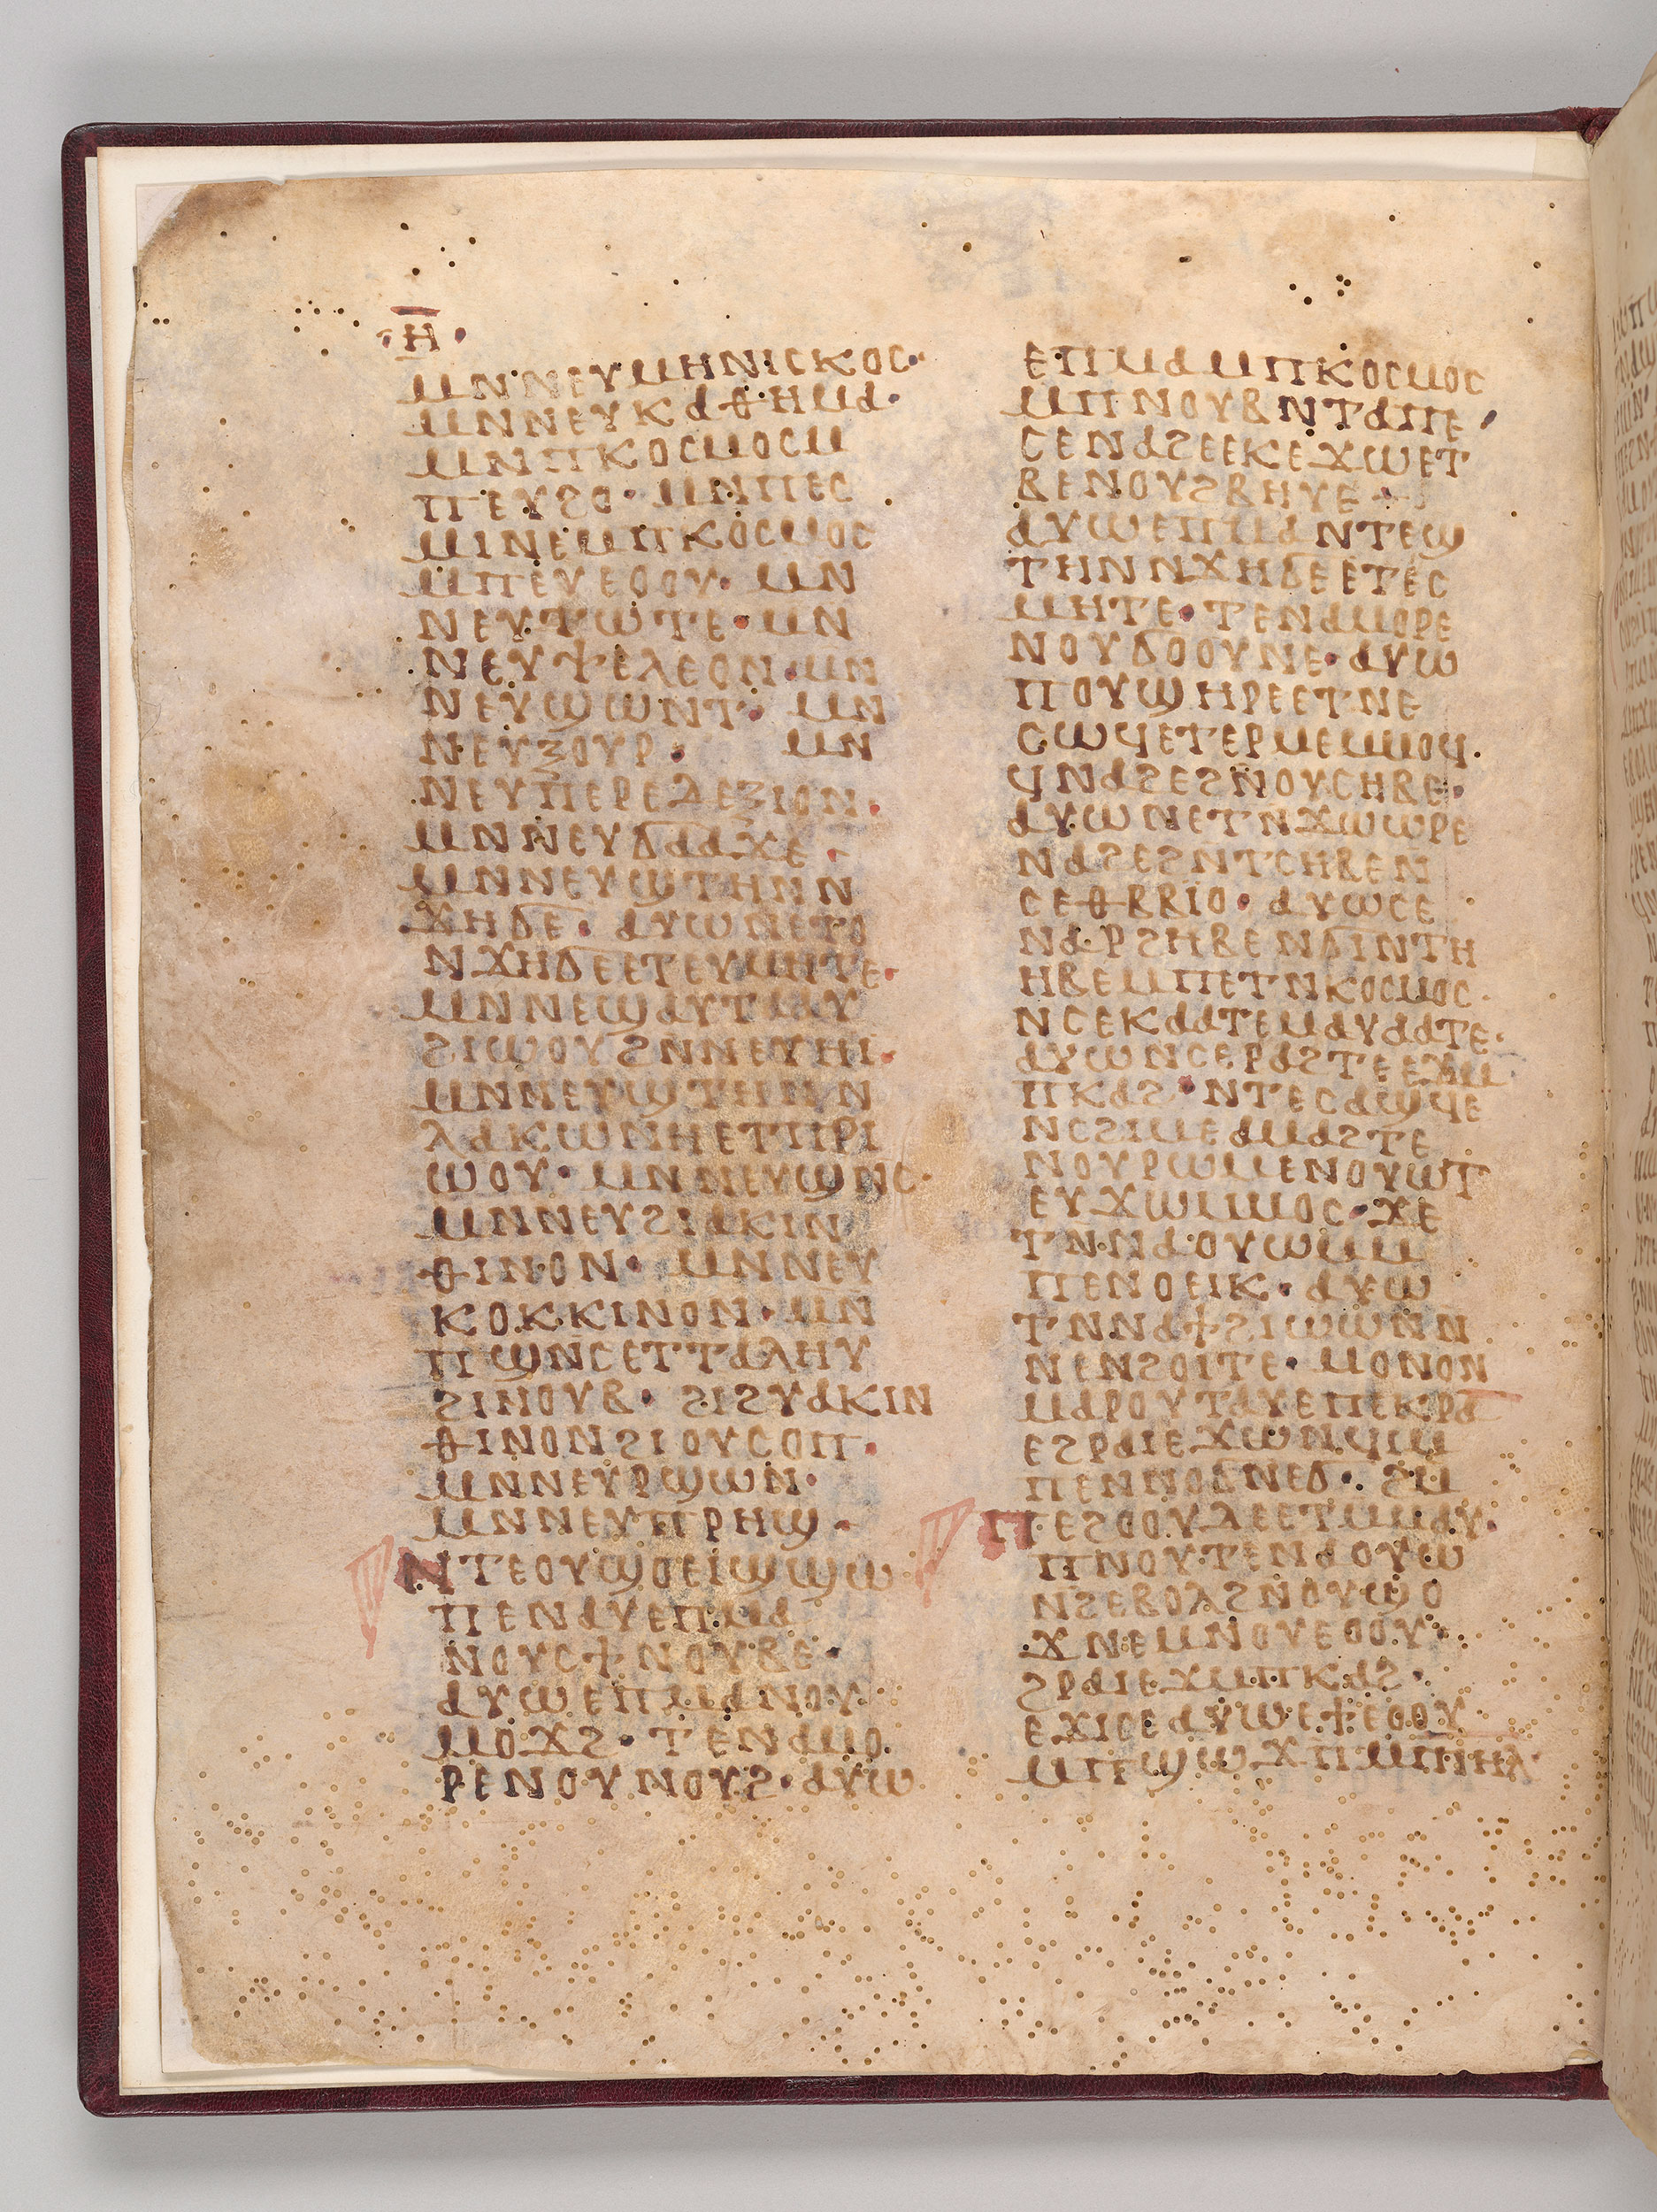 ⲏ̅
ⲙⲛⲛⲉⲩⲙⲏⲛⲓⲥⲕⲟⲥ·
ⲙⲛⲛⲉⲩⲕⲁⲑⲏⲙⲁ·
ⲙⲛⲡⲕⲟⲥⲙⲟⲥⲙ
ⲡⲉⲩϩⲟ· ⲙⲛⲡⲉⲥ
ⲙⲓⲛⲉⲙⲡⲕⲟⲥⲙⲟⲥ
ⲙⲡⲉⲩⲉⲟⲟⲩ· ⲙⲛ
ⲛⲉⲩⲧⲱⲧⲉ· ⲙⲛ
ⲛⲉⲩⲯⲉⲗⲉⲟⲛ·ⲙⲛ
ⲛⲉⲩϣⲱⲛⲧ· ⲙⲛ
ⲛⲉⲩⲝⲟⲩⲣ· ⲙⲛ
ⲛⲉⲩⲡⲉⲣⲉⲇⲉⲝⲓⲟⲛ·
ⲙⲛⲛⲉⲩϭⲁⲁϫⲉ·
ⲙⲛⲛⲉⲩϣⲧⲏⲛⲛ
ϫⲏϭⲉ· ⲁⲩⲱⲛⲉⲧⲟ
ⲛϫⲏϭⲉⲉⲧⲉⲩⲙⲏⲧⲉ·
ⲙⲛⲛⲉϣⲁⲩⲧⲁⲁⲩ
ϩⲓⲱⲟⲩϩⲛⲛⲉⲩⲏⲓ·
ⲙⲛⲛⲉⲩϣⲧⲏⲛⲛ
ⲗⲁⲕⲱⲛⲏⲉⲧⲡⲣⲓ
ⲱⲟⲩ· ⲙⲛⲛⲉⲩϣⲛⲥ·
ⲙⲛⲛⲉⲩϩⲓⲁⲕⲓⲛ
ⲑⲓⲛⲟⲛ· ⲙⲛⲛⲉⲩ
ⲕⲟⲕⲕⲓⲛⲟⲛ·ⲙⲛ
ⲡϣⲛⲥⲉⲧⲧⲁⲗⲏⲩ
ϩⲓⲛⲟⲩⲃ· ϩⲓϩⲩⲁⲕⲓⲛ
ⲑⲓⲛⲟⲛϩⲓⲟⲩⲥⲟⲡ·
ⲙⲛⲛⲉⲩⲣϣⲱⲛ·
ⲙⲛⲛⲉⲩⲡⲣⲏϣ·
ⲛⲧⲉⲟⲩϣⲟⲉⲓϣϣⲱ
ⲡⲉⲛⲁⲩⲉⲡⲙⲁ
ⲛⲟⲩⲥϯⲛⲟⲩⲃⲉ·
ⲁⲩⲱⲉⲡⲙⲁⲛⲟⲩ
ⲙⲟϫϩ· ⲧⲉⲛⲁⲙⲟ
ⲣⲉⲛⲟⲩⲛⲟⲩϩ·ⲁⲩⲱ
ⲉⲡⲙⲁⲙⲡⲕⲟⲥⲙⲟⲥ
ⲙⲡⲛⲟⲩⲃⲛⲧⲁⲡⲉ
ⲥⲉⲛⲁϩⲉⲉⲕⲉϫⲱⲉⲧ
ⲃⲉⲛⲟⲩϩⲃⲏⲩⲉ·
ⲁⲩⲱⲉⲡⲙⲁⲛⲧⲉϣ
ⲧⲏⲛⲛϫⲏϭⲉⲉⲧⲉⲥ
ⲙⲏⲧⲉ·ⲧⲉⲛⲁⲙⲟⲣⲉ
ⲛⲟⲩϭⲟⲟⲩⲛⲉ·ⲁⲩⲱ
ⲡⲟⲩϣⲏⲣⲉⲉⲧⲛⲉ
ⲥⲱϥⲉⲧⲉⲣⲙⲉⲙⲙⲟϥ·
ϥⲛⲁϩⲉϩⲛⲟⲩⲥⲏⲃⲉ·
ⲁⲩⲱⲛⲉⲧⲛϫⲱⲱⲣⲉ
ⲛⲁϩⲉϩⲛⲧⲥⲏⲃⲉⲛ
ⲥⲉⲑⲃⲃⲓⲟ· ⲁⲩⲱⲥⲉ
ⲛⲁⲣϩⲏⲃⲉⲛϭⲓⲛⲧⲏ
ⲏⲃⲉⲙⲡⲉⲧⲛⲕⲟⲥⲙⲟⲥ·
ⲛⲥⲉⲕⲁⲁⲧⲉⲙⲁⲩⲁⲁⲧⲉ·
ⲁⲩⲱⲛⲥⲉⲣⲁϩⲧⲉⲉϫⲙ
ⲡⲕⲁϩ·ⲛⲧⲉⲥⲁϣϥⲉ
ⲛⲥϩⲓⲙⲉⲁⲙⲁϩⲧⲉ
ⲛⲟⲩⲣⲱⲙⲉⲛⲟⲩⲱⲧ
ⲉⲩϫⲱⲙⲙⲟⲥ·ϫⲉ
ⲧⲛⲛⲁⲟⲩⲱⲙ
ⲡⲉⲛⲟⲉⲓⲕ· ⲁⲩⲱ
ⲧⲛⲛⲁϯϩⲓⲱⲱⲛⲛ
ⲛⲉⲛϩⲟⲓⲧⲉ· ⲙⲟⲛⲟⲛ
ⲙⲁⲣⲟⲩⲧⲁⲩⲉⲡⲉⲕⲣⲁ̅
ⲉϩⲣⲁⲓⲉϫⲱⲛϥⲓⲙ
ⲡⲉⲛⲛⲟϭⲛⲉϭ· ϩⲙ
ⲡⲉϩⲟⲟⲩⲇⲉⲉⲧⲙⲙⲁⲩ·
ⲡⲛⲟⲩⲧⲉⲛⲁⲟⲩⲱ
ⲛϩⲉⲃⲟⲗϩⲛⲟⲩϣⲟ
ϫⲛⲉⲙⲛⲟⲩⲉⲟⲟⲩ·
ϩⲣⲁⲓⲉϫⲙⲡⲕⲁϩ·
ⲉϫⲓⲥⲉⲁⲩⲱⲉϯⲉⲟⲟⲩ
ⲙⲡϣⲱϫⲡⲙⲡⲓⲏⲗ